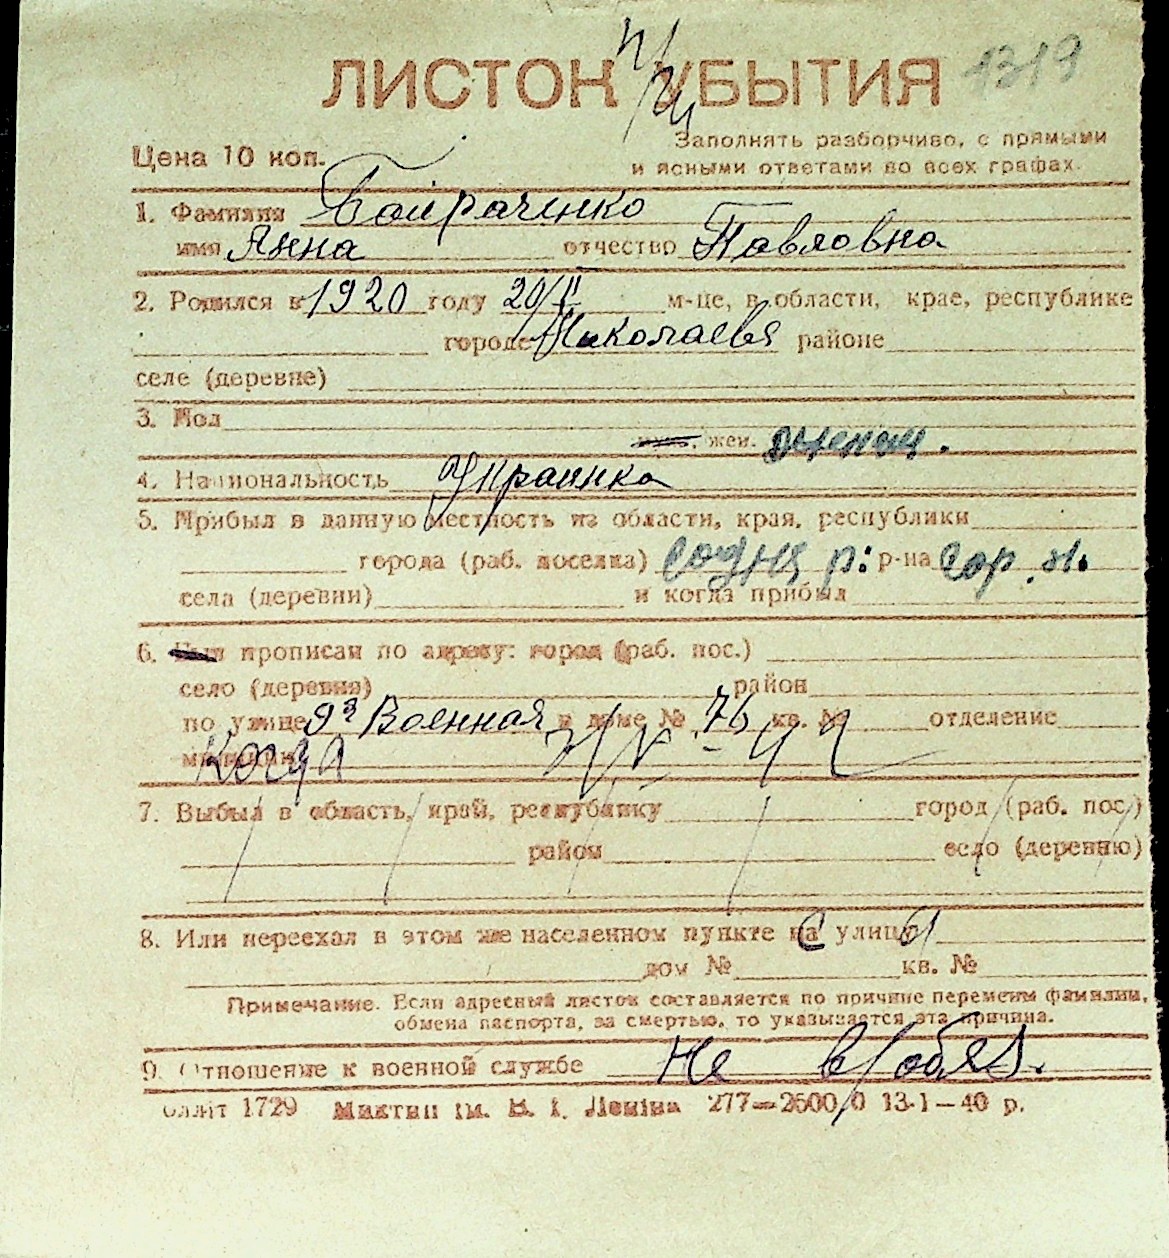 ЛИСТОК УБЫТИЯ 1319
Заполнять разборчиво, с прямыми
Цена 10 коп.
и ясными ответами во всех графах.
1. Фамилия Байраченко
имя Анна отчество Павловна
2. Родился в 1920 году 20/II м-це, в области, крае, республике
городе Николаеве районе
селе (деревне)
3. Пол
муж. жен. женск.
4. Национальность Украинка
5. Прибыл в данную местность из области, края, республики
города (раб. поселка) р-на
села (деревни) и когда прибыл
6. Был прописан по адресу: город (раб. пос.)
село (деревня) район
по улице 9я Военная в доме № 76 кв. № отделение
милиции Когда
7. Выбыл в область, край, республику город (раб. пос.)
район село (деревню)
8. Или переехал в этом же населенном пункте на улицу
дом № кв. №
Примечание. Если адресный листок составляется по причине перемены фамилии,
обмена паспорта, за смертью, то указывается эта причина.
9. Отношение к военной службе не в/обяз.
Обліт 1729 Миктип ім. В. І. Леніна 277—2600 0 13-1—40 р.